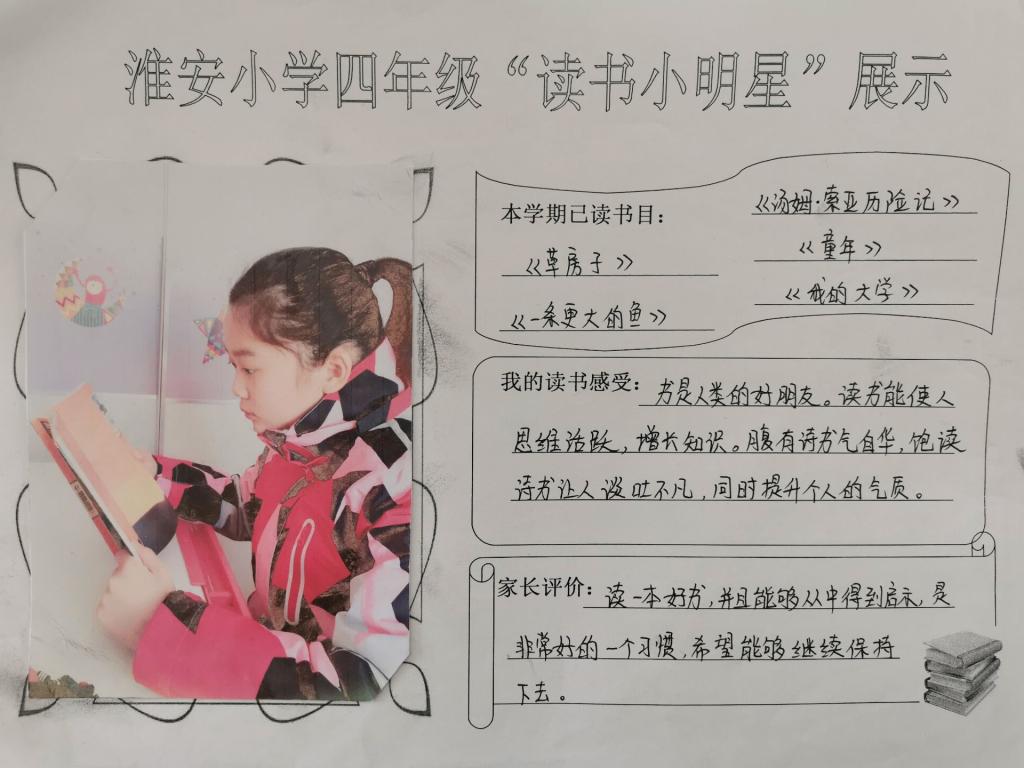 淮安小学四年级“读书小明星”展示
本学期已读书目：
《草房子》
《一条更大的鱼》
《汤姆·索亚历险记》
《童年》
《我的大学》
我的读书感受：书是人类的好朋友。读书能使人
思维活跃，增长知识。腹有诗书气自华，饱读
诗书让人谈吐不凡，同时提升个人的气质。
家长评价：读一本好书，并且能够从中得到启示，是
非常好的一个习惯，希望能够继续保持
下去。